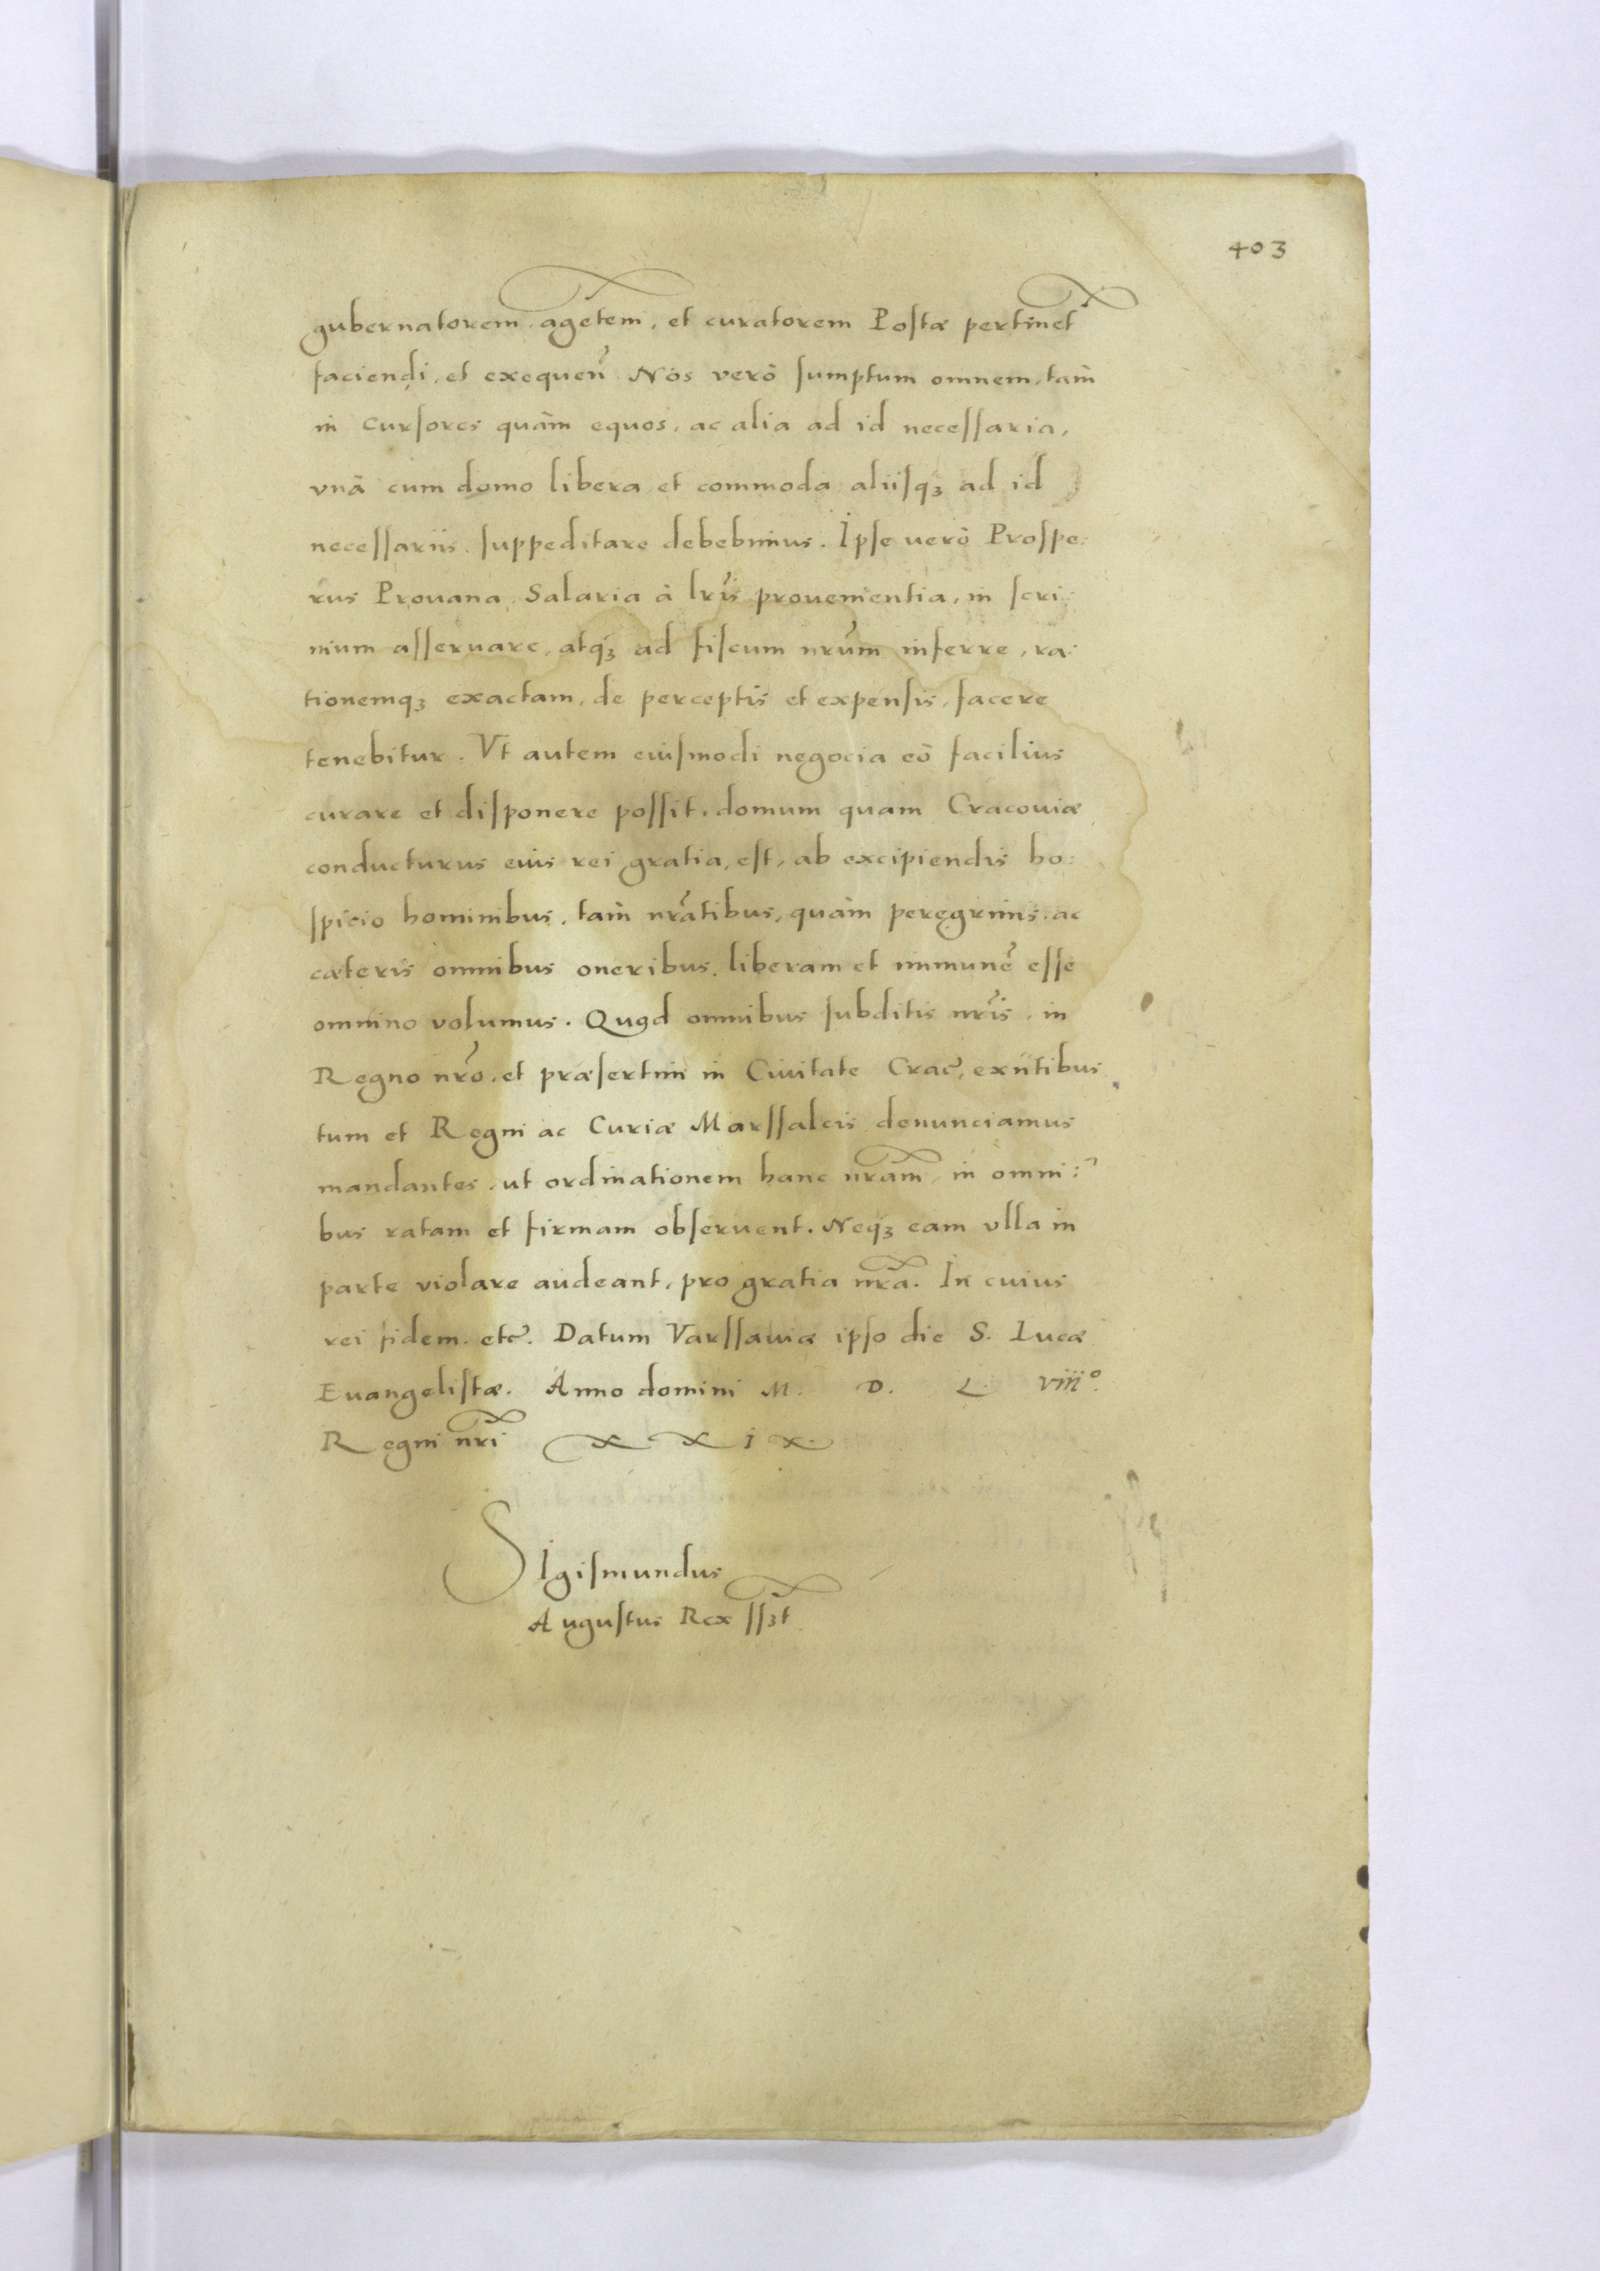 403
gubernatorem, agẽtem, et curatorem Postæ pertinet
faciendi, et exequeñ. Nos verò sumptum omnem, tam̀
in cursores quàm equos, ac alia ad id necessaria,
vnà cum domo libera et commoda aliisqȝ ad id
necessariis, suppeditare debebimus. Ipse uerò Prospe:
rus Prouana Salaria à lr̃is prouenientia, in scri:
nium asseruare, atqȝ ad fiscum nr̃um inferre, ra:
tionemqȝ exactam, de perceptis et expensis, facere
tenebitur. Vt autem eiusmodi negocia eò facilius
curare et disponere possit, domum quam Cracouiæ
conducturus eius rei gratia, est, ab excipiendis ho:
spicio hominibus, tam̀ nr̃atibus, quàm peregrinis, ac
cæteris omnibus oneribus, liberam et immunẽ esse
omnino volumus. Quod omnibus subditis nr̃is, in
Regno nr̃o, et præsertim in Ciuitate Crac̃, exñtibus
tum et Regni ac Curiæ Marssalcis denunciamus
mandantes, ut ordinationem hanc nr̃am, in omni:
bus ratam et firmam obseruent. Neqȝ eam vlla in
parte violare audeant, pro gratia nr̃a. In cuius
rei fidem. etc̃. Datum Varssauiæ ipso die S. Lucæ
Euangelistæ. Anno domini M. D. L. viii°.
Regni nr̃i x x i x.
Sigismundus
Augustus Rex ssȝt